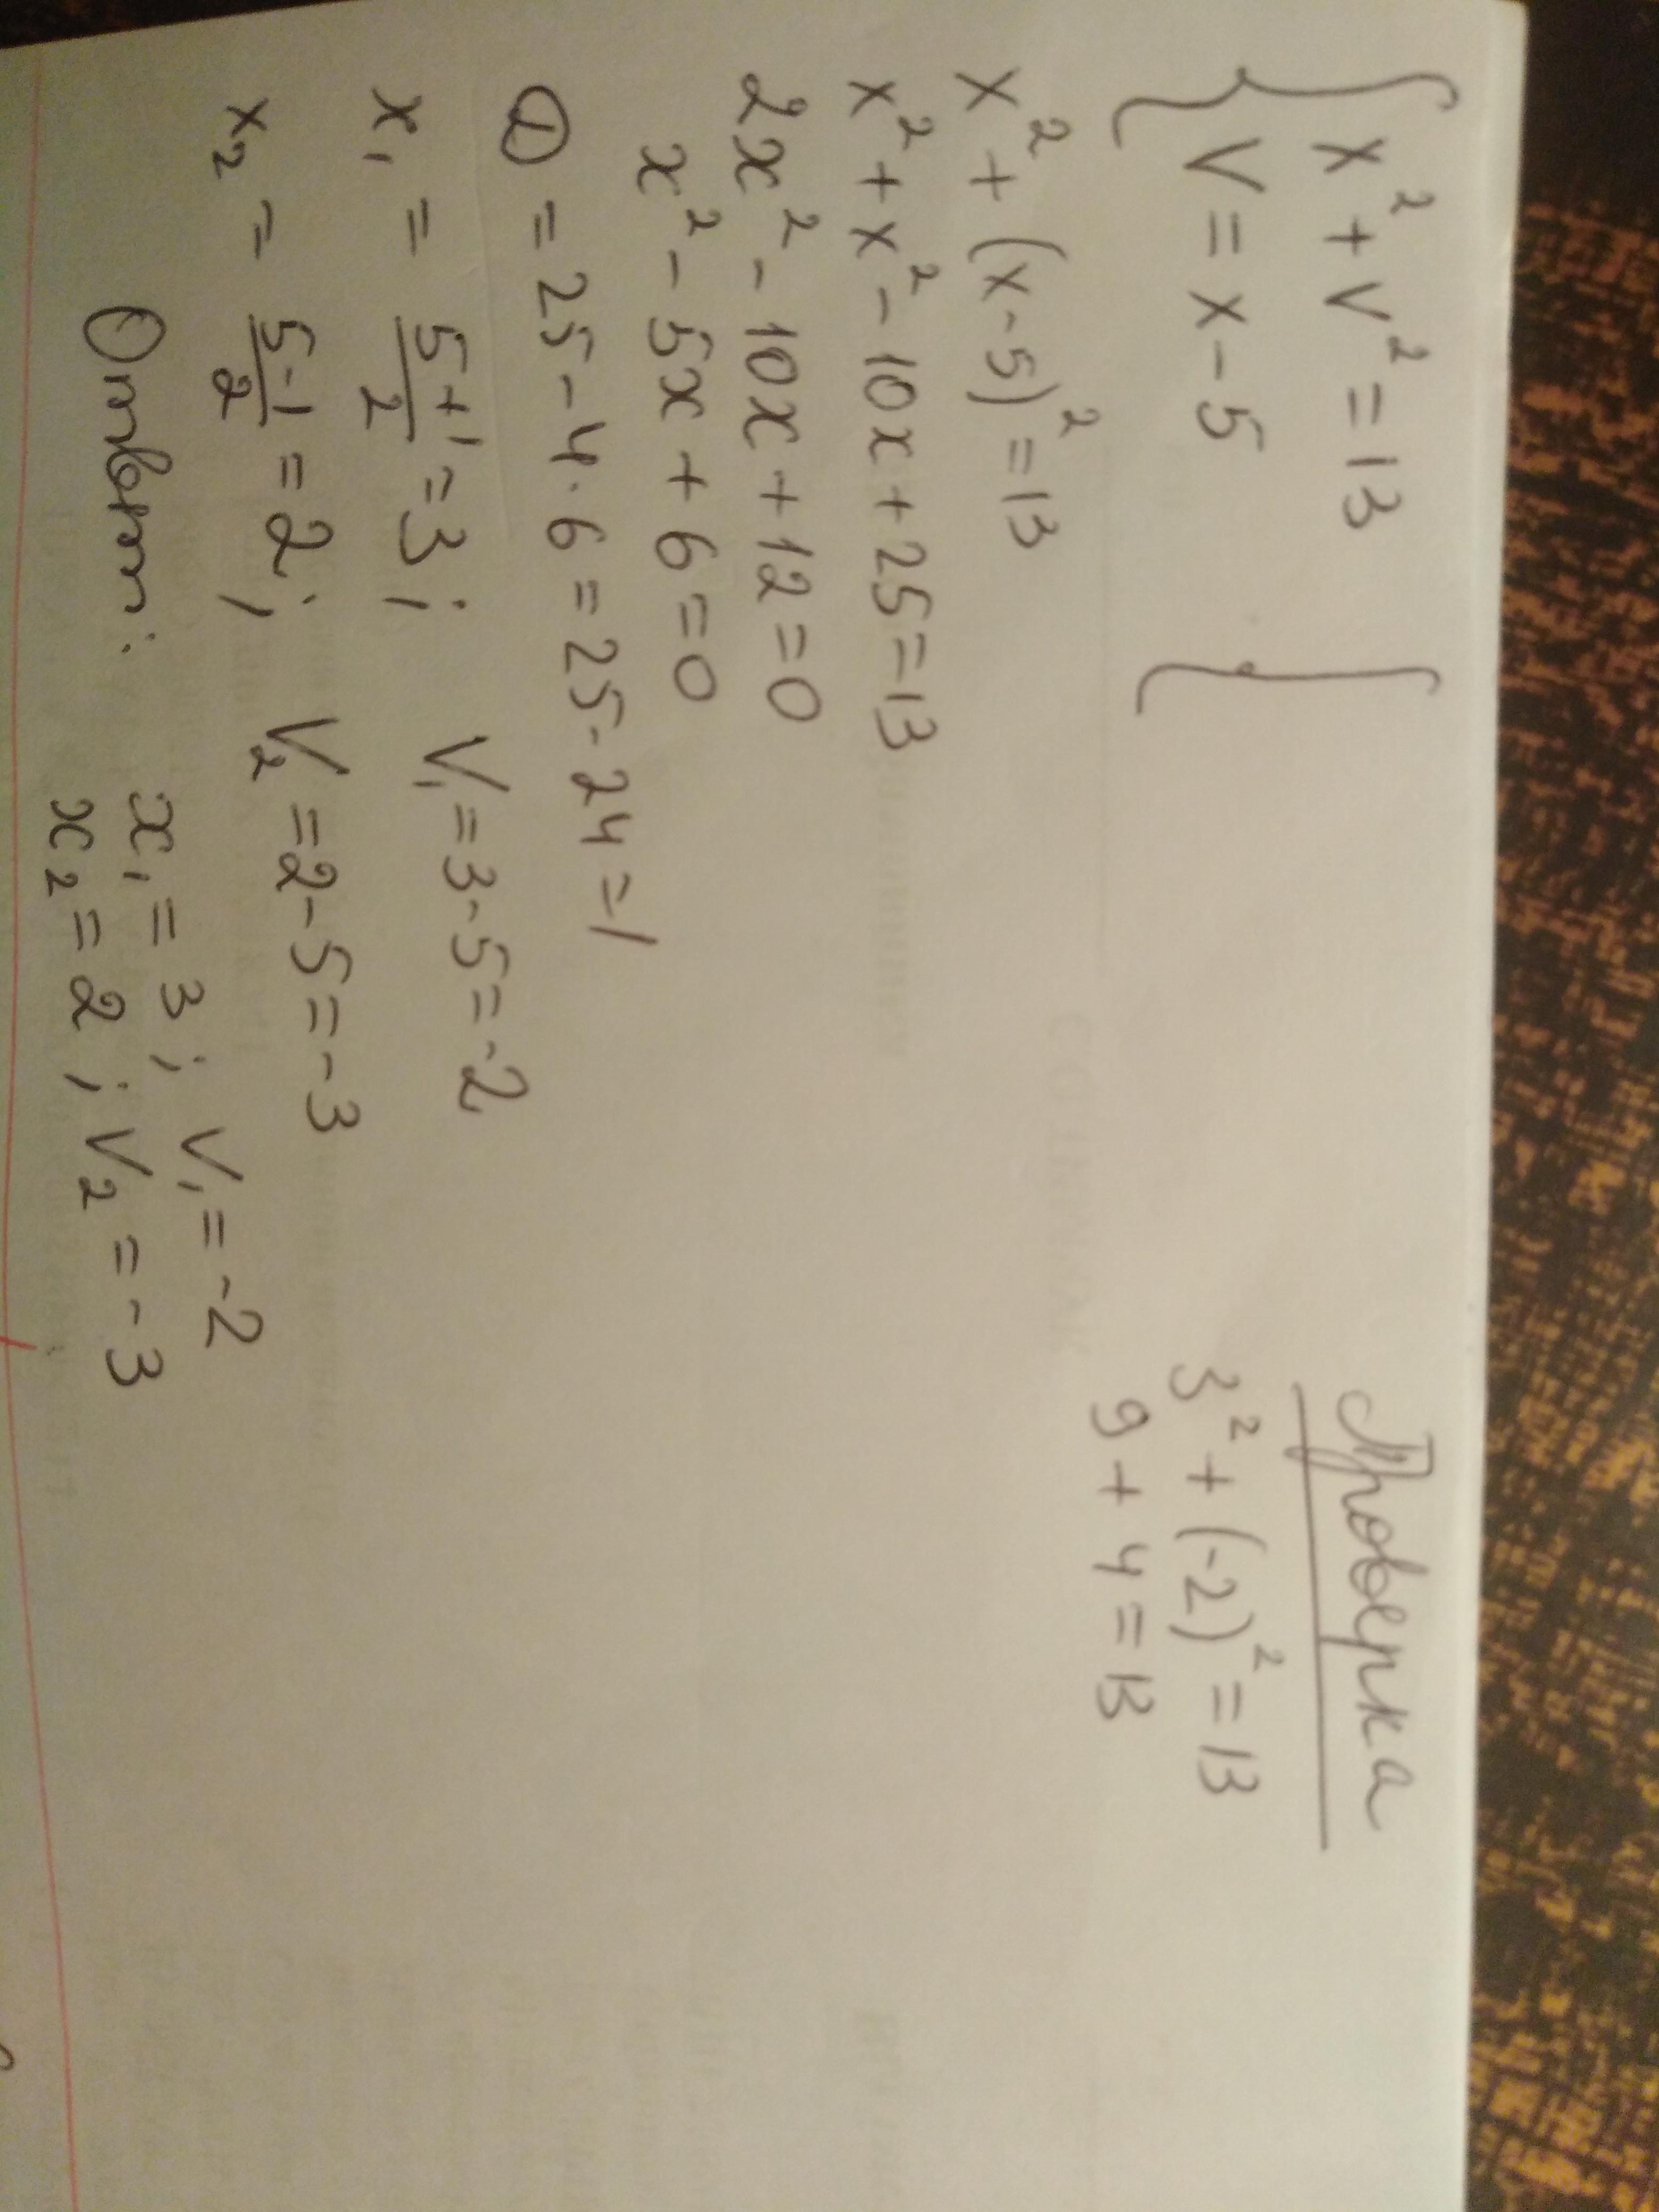 { x² + V² = 13 {
V = x - 5
x² + (x - 5)² = 13
x² + x² - 10x + 25 = 13
2x² - 10x + 12 = 0
x² - 5x + 6 = 0
D = 25 - 4 · 6 = 25 - 24 = 1
x₁ = (5+1)/2 = 3; V₁ = 3 - 5 = -2
x₂ = (5-1)/2 = 2; V₂ = 2 - 5 = -3
Ответ: x₁ = 3; V₁ = -2
x₂ = 2; V₂ = -3
Проверка
3² + (-2)² = 13
9 + 4 = 13